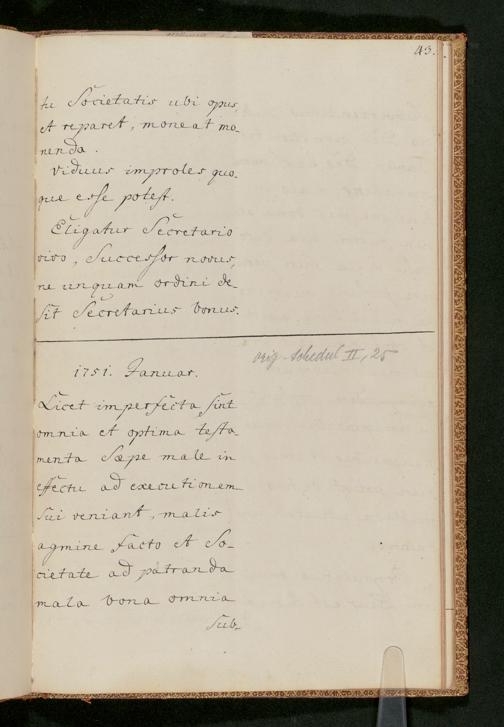 43.
tu Societatis ubi opus
et reparet, moneat mo-
nenda.
Viduus improles quo-
que esse potest.
Eligatur Secretario
vivo, Successor novus,
ne unquam ordini de-
sit Secretarius bonus.
orig. Schedul II, 25
1751. Januar.
Licet imperfecta sint
omnia et optima testa-
menta Sæpe male in
effectu ad executionem
sui veniant, malis
agmine facto et So-
cietate ad patranda
mala bona omnia
sub-